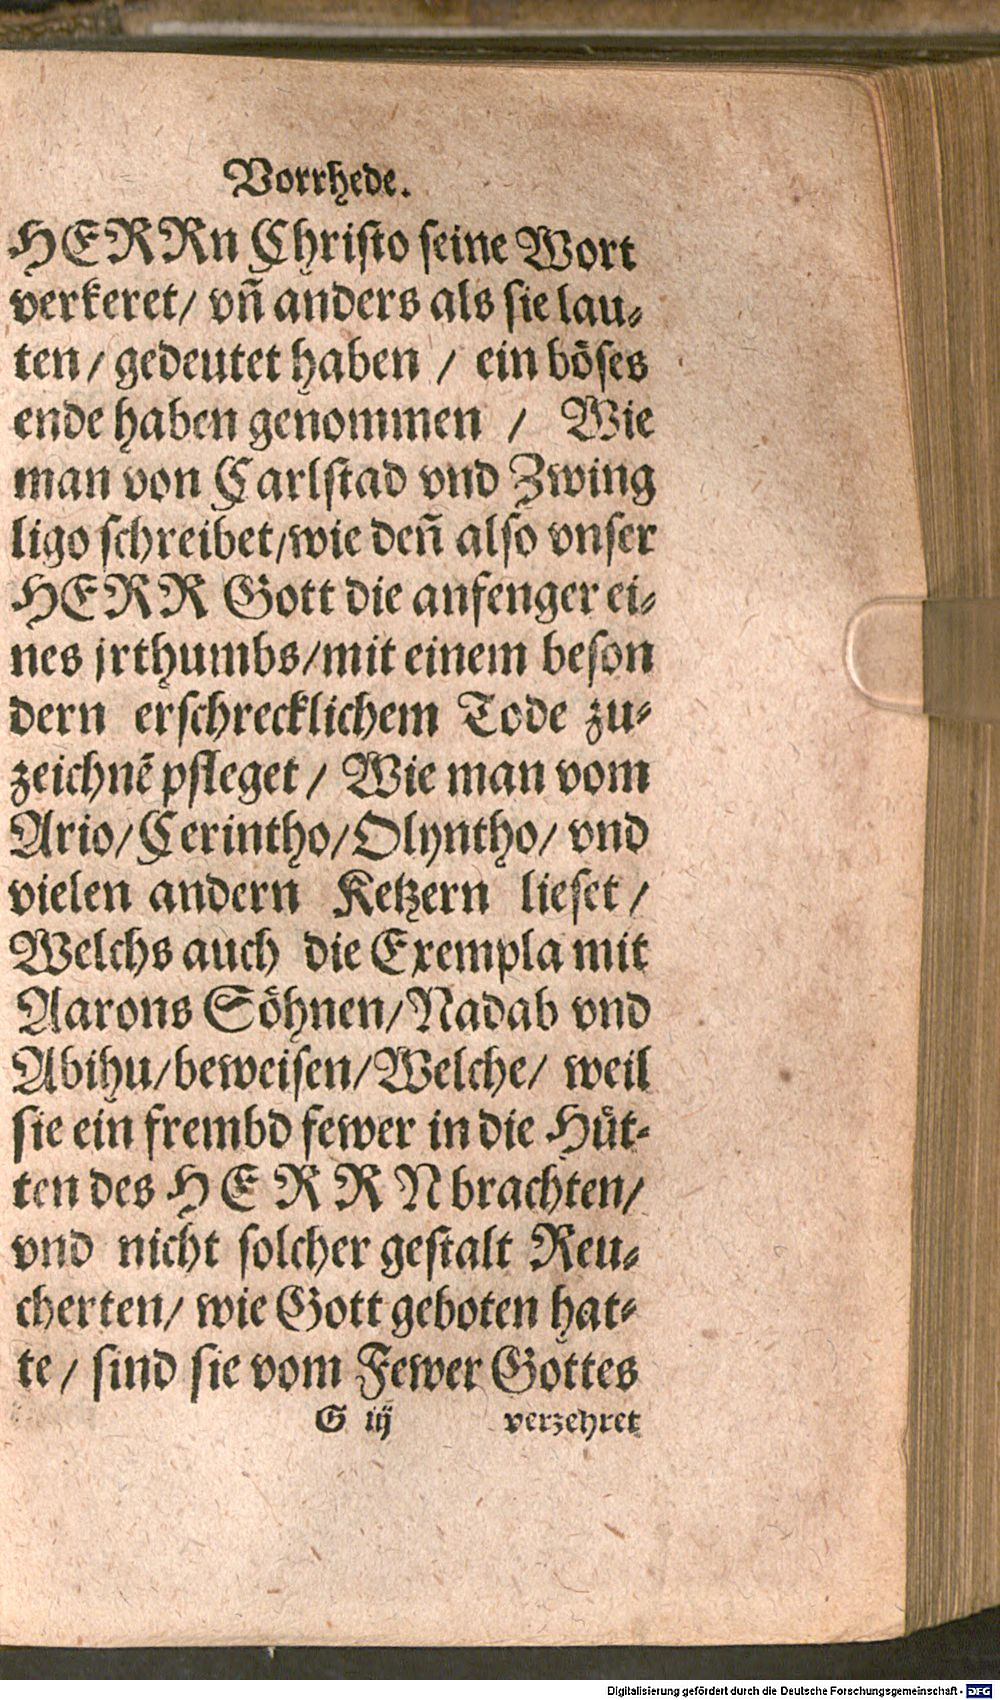 Vorrhede.
HERRn Christo seine Wort
verkeret/ vñ anders als sie lau⸗
ten/ gedeutet haben / ein böses
ende haben genommen / Wie
man von Carlstad vnd Zwing
ligo schreibet/wie deñ also vnser
HERR Gott die anfenger ei⸗
nes jrthumbs/mit einem beson
dern erschrecklichem Tode zu⸗
zeichnē pfleget / Wie man vom
Ario/Cerintho/Olyntho/ vnd
vielen andern Ketzern lieset /
Welchs auch die Exempla mit
Aarons Söhnen/Nadab vnd
Abihu/beweisen/Welche/ weil
sie ein frembd fewer in die Hüt⸗
ten des HERRN brachten/
vnd nicht solcher gestalt Reu⸗
cherten/ wie Gott geboten hat⸗
te / sind sie vom Fewer Gottes
G iij verzehret
Digitalisierung gefördert durch die Deutsche Forschungsgemeinschaft - DFG